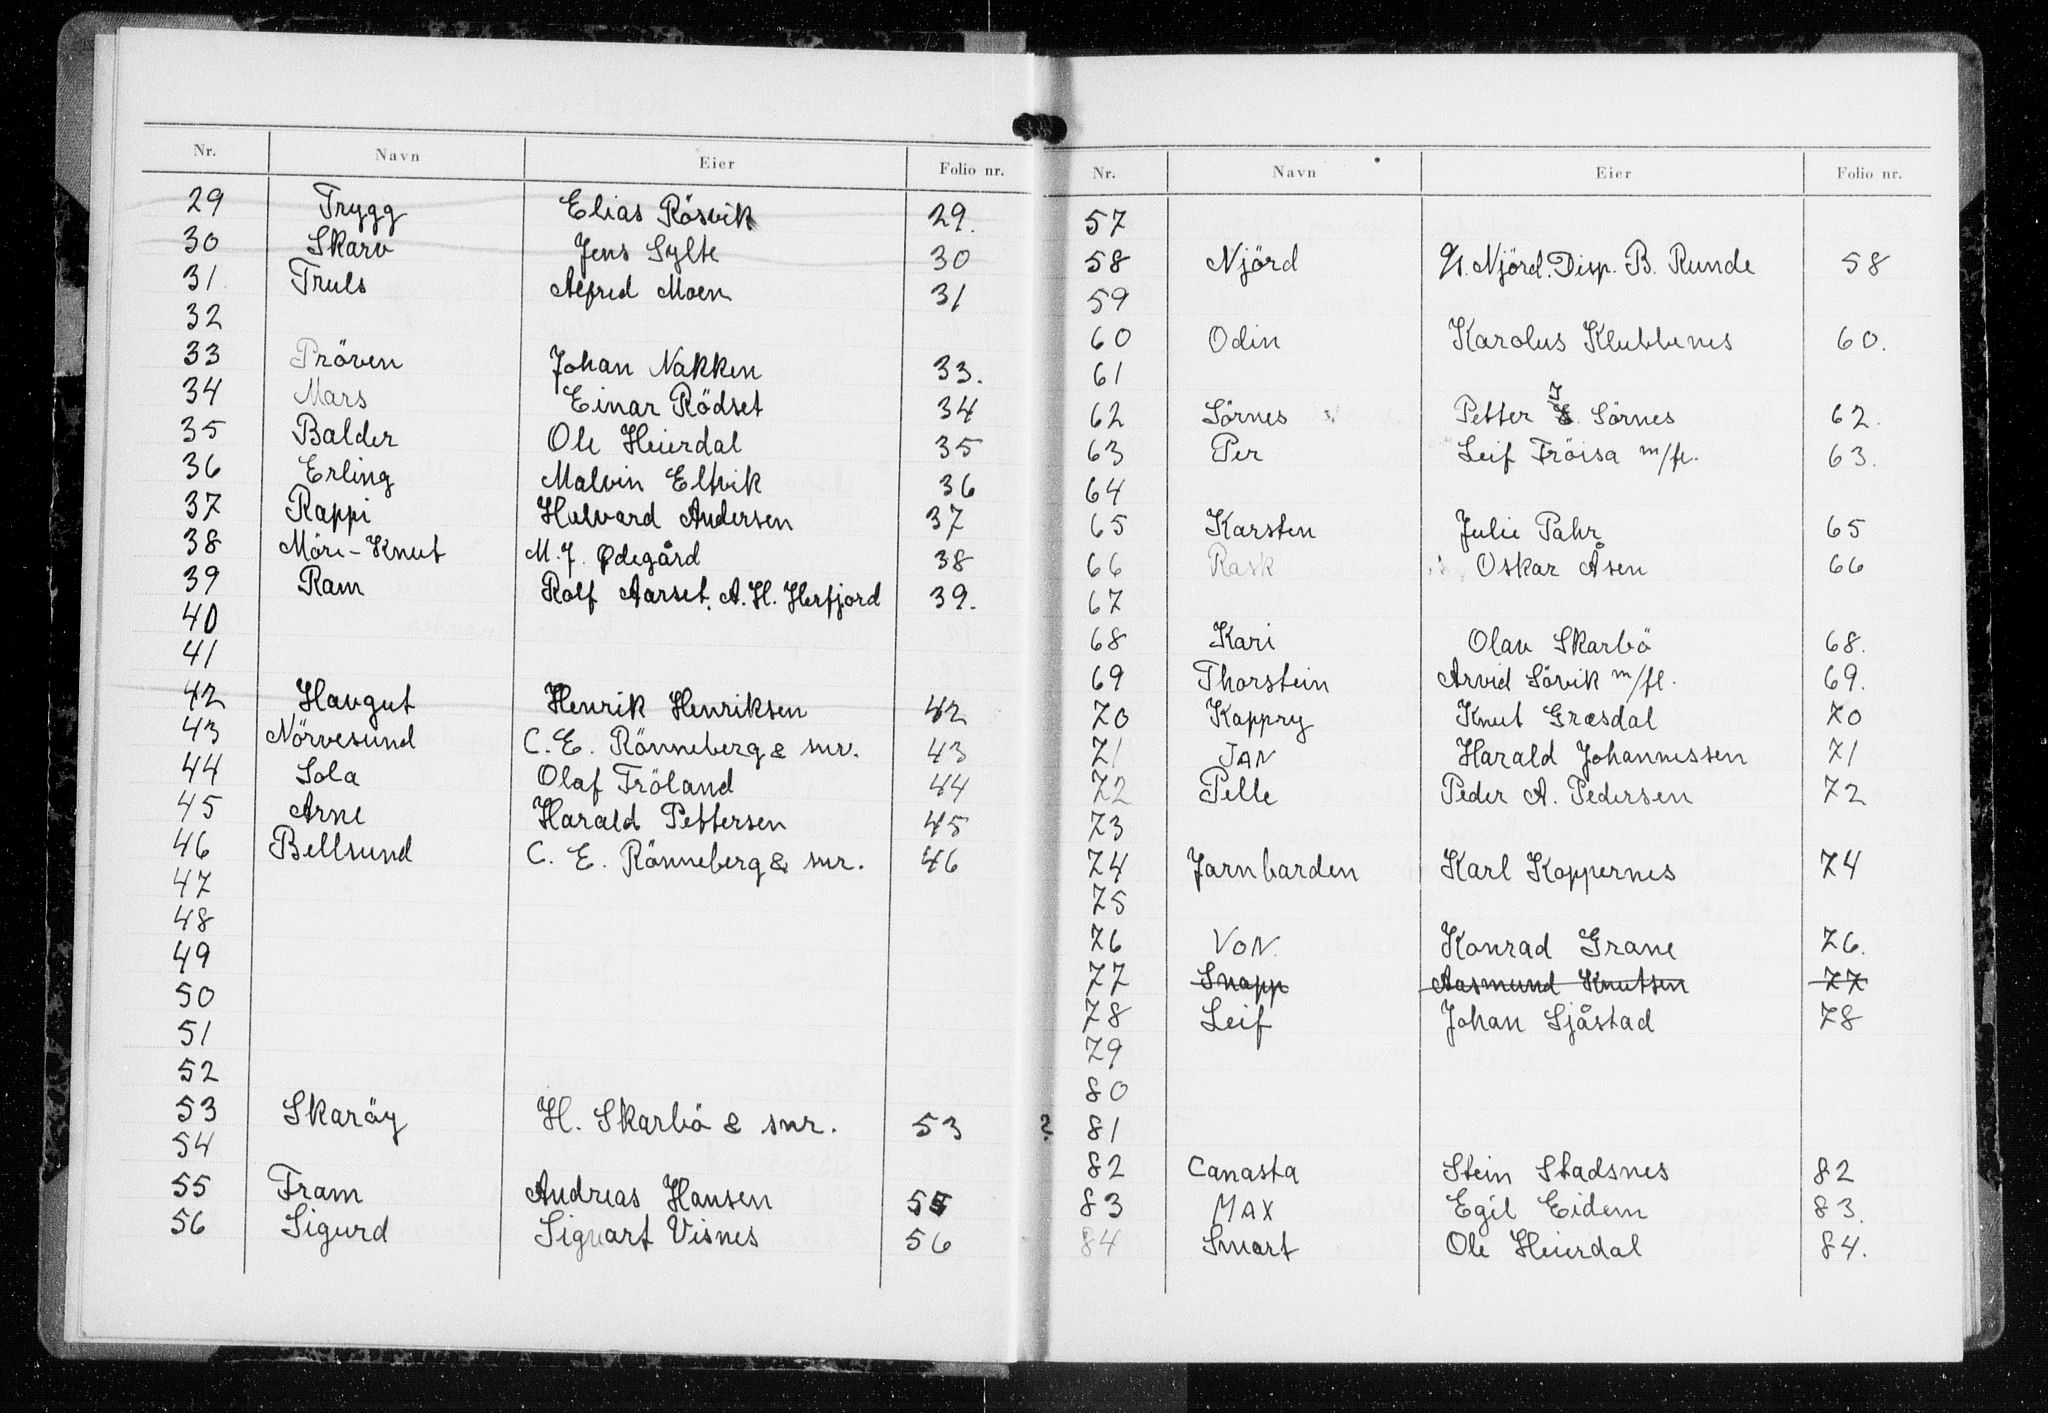 Nr. Navn Eier Folio nr.
29 Trygg Elias Rösvik 29.
30 Skarv Jens Sylte 30
31. Truls Alfred Moen 31
32
33 Pröven Johan Nakken 33.
34 Mars Einar Rödset 34
35 Balder Ole Heierdal 35
36 Erling Malvin Elfvik 36
37 Rappi Halvard Andersen 37
38 Möre-Knut M. J. Ødegård 38
39 Ram Rolf Aarset, A. H. Herfjord 39.
40
41
42 Havgut Henrik Henriksen 42
43 Nörvesund C. E. Rönneberg & snr. 43
44 Sola Olaf Fröland 44
45 Arne Harald Pettersen 45
46 Bellsund C. E. Rönneberg & snr. 46
47
48
49
50
51
52
53 Skaröy H. Skarbö & snr. 53
54
55 Fram Andreas Hansen 55
56 Sigurd Sigvart Visnes 56
Nr. Navn Eier Folio nr.
57
58 Njörd P/r. Njörd. Disp. B. Runde 58
59
60 Odin Karolus Klubbenes 60.
61
62 Sörnes Petter J. Sörnes 62.
63 Per Leif Fröisa m/fl. 63.
64
65 Karsten Julie Pahr 65
66 Rask Oskar Åsen 66
67
68 Kari Olav Skarbö 68.
69 Thorstein Arvid Sövik m/fl. 69.
70 Koppry Knut Græsdal 70
71 JAN Harald Johannessen 71
72 Pelle Peder A. Pedersen 72
73
74 Jarnbarden Karl Koppernes 74
75
76 VON. Konrad Grane 76.
77 Snapp Aasmund Knutsen 77
78 Leif Johan Sjåstad 78
79
80
? 81
82 Canasta Stein Stadsnes 82
83 MAX Egil Eidem 83.
84 Smart Ole Heierdal 84.